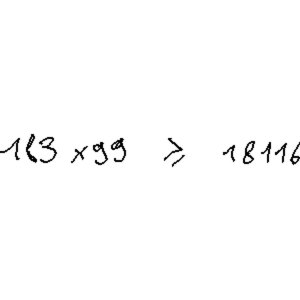 163 x 99 ⩾ 18116